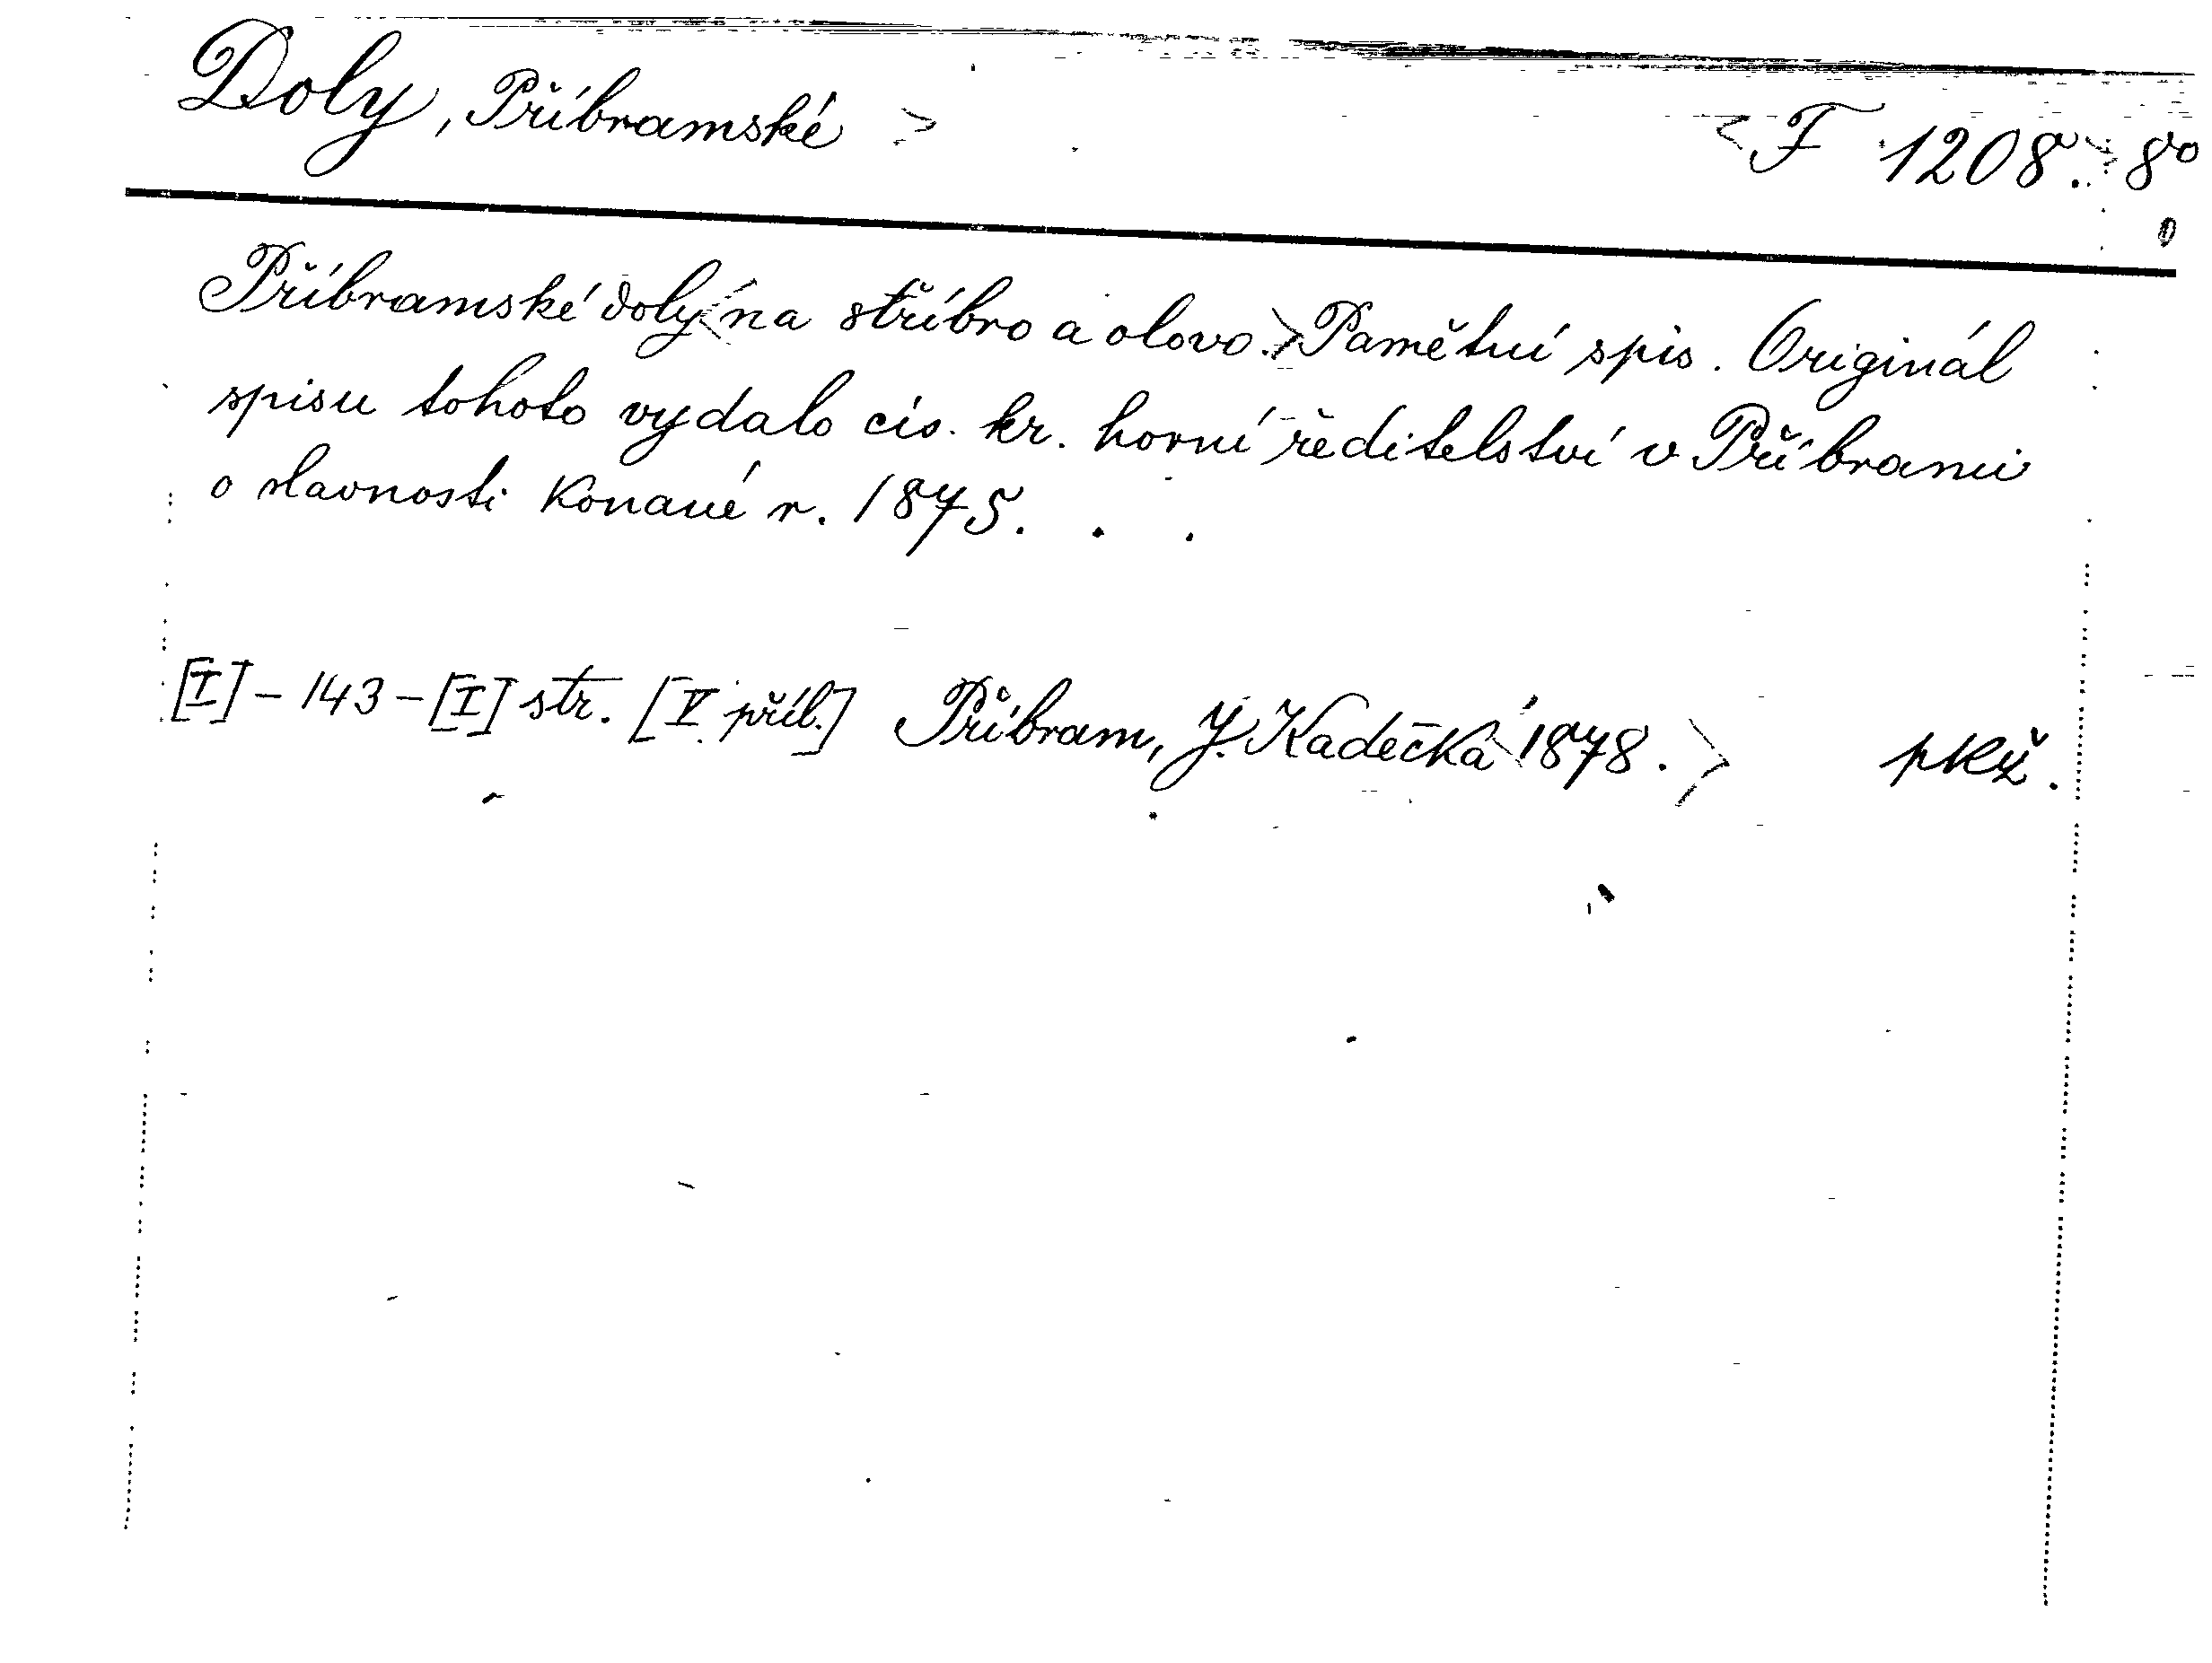 Doly, Příbramské > <F 1208.> 8°
Příbramské doly <na stříbro a olovo.> Pamětní spis. Originál
spisu tohoto vydalo cís. kr. horní ředitelství v Příbrami
o slavnosti konané r. 1875. . .
[I] - 143 - [I] str. [V příl.] Příbram, J. Kadečka <1878.> pkž.